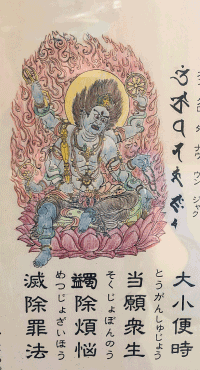 クロ ダ ナウ ウン ジャク
大小便時
とうがんしゅじょう
当願衆生
そくじょぼんのう
蠲除煩悩
めつじょざいほう
滅除罪法